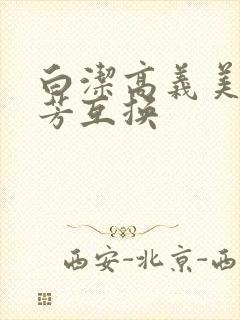 白潔高義美
芳互換
西安-北京-西